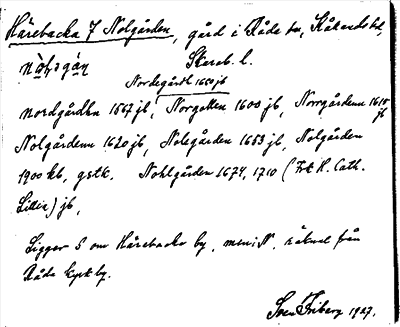 Härebacka 7 Nolgården, gård i Råde sn, Kåkinds hd,
Skarab. l.
Nordegårdl 1650 jb
Nordgårdhn 1567 jb, Norgotten 1600 jb, Norrgårdenn 1610 jb
Nolgårdenn 1620 jb, Nolegården 1653 jb, Nolgården
1900 kb, gstk. Nohlgården 1674, 1710 (Frk H. Cath.
Lillie) jb,
Ligger S om Härebacka by, men N, räknat från
Råda kyrkby.
Sven Friberg 1927.